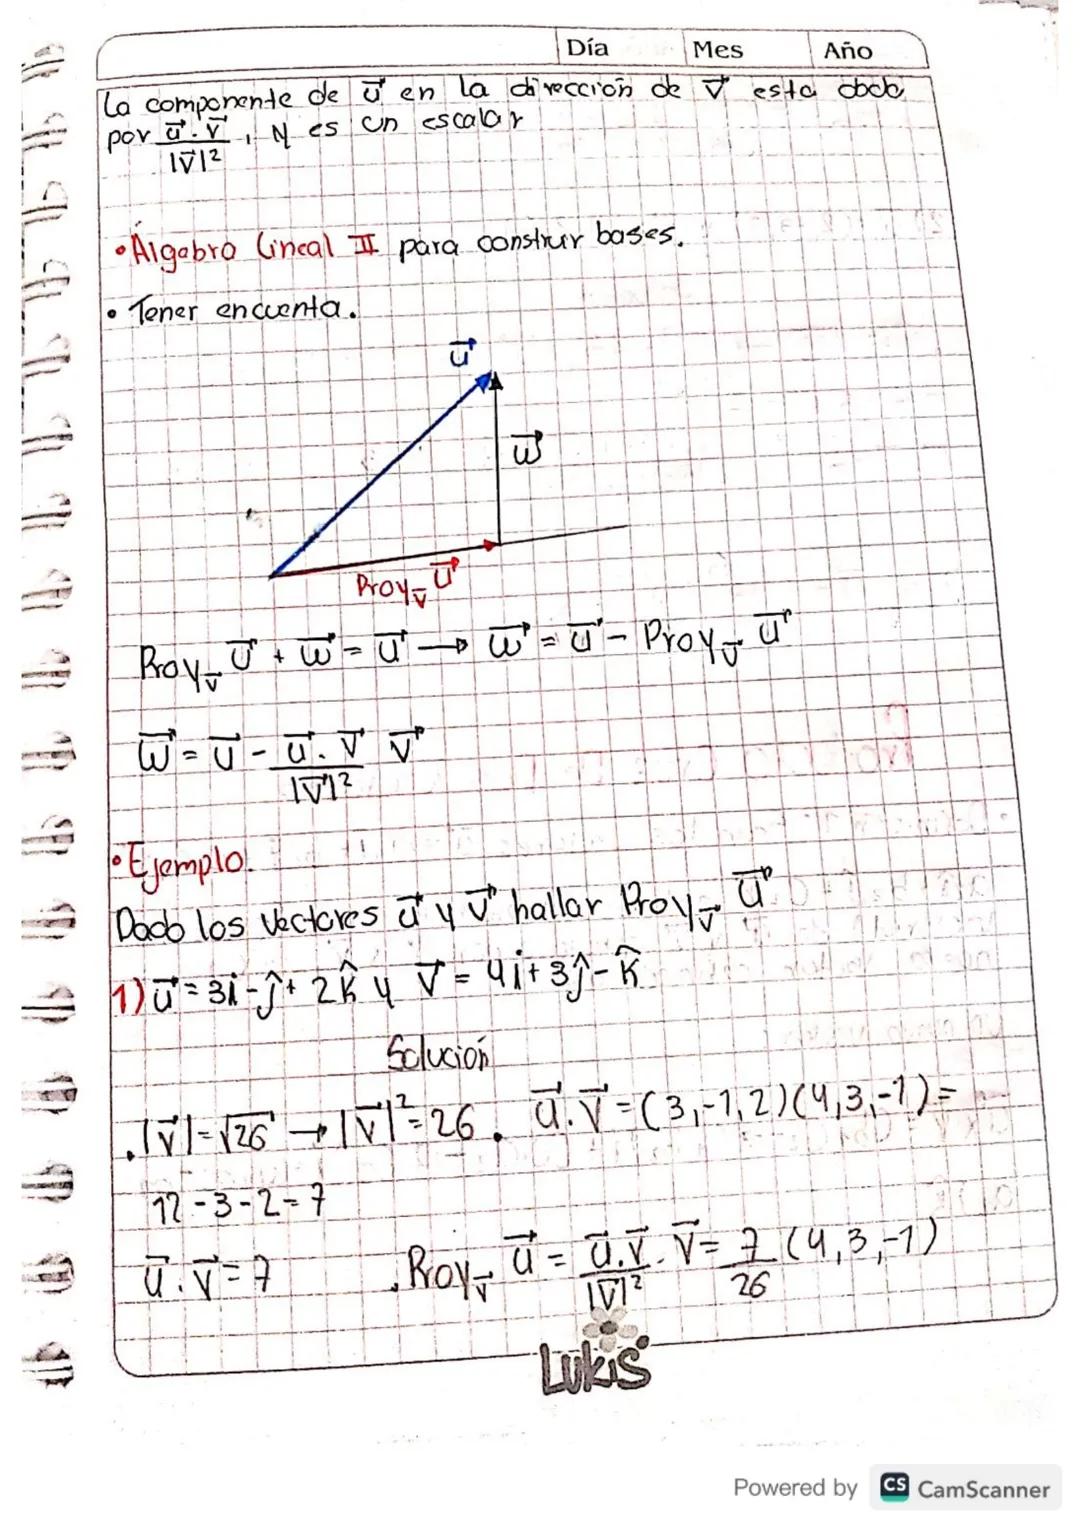 Día Mes Año
La componente de u⃗ en la dirección de v⃗ esta dada
por u⃗ . v⃗ / |v⃗|², y es un escalar
• Álgebra Lineal II para construir bases.
• Tener encuenta.
u⃗
w⃗
Proy_v⃗ u⃗
Proy_v⃗ u⃗ + w⃗ = u⃗ → w⃗ = u⃗ - Proy_v⃗ u⃗
w⃗ = u⃗ - (u⃗ . v⃗ / |v⃗|²) v⃗
• Ejemplo.
Dado los vectores u⃗ y v⃗ hallar Proy_v⃗ u⃗
1) u⃗ = 3i - ĵ + 2k̂ y v⃗ = 4i + 3ĵ - k̂
Solución
. |v⃗| = √26 → |v⃗|² = 26 . u⃗ . v⃗ = (3,-1,2)(4,3,-1) =
12 - 3 - 2 = 7
u⃗ . v⃗ = 7 . Proy_v⃗ u⃗ = (u⃗ . v⃗ / |v⃗|²) . v⃗ = 7/26 (4,3,-1)
LUKIS
Powered by CS CamScanner